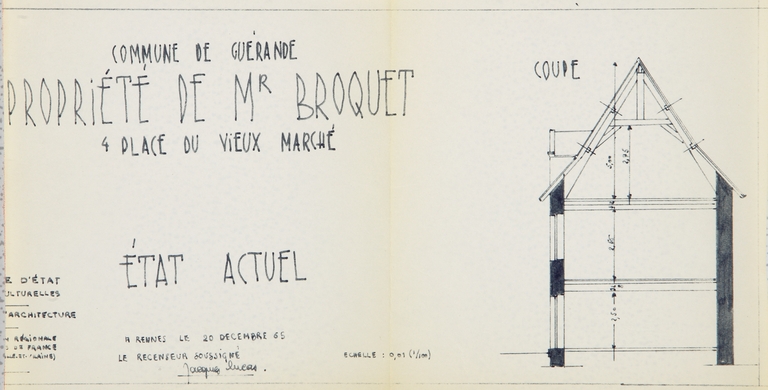 COMMUNE DE GUÉRANDE
PROPRIÉTÉ DE MR BROQUET
4 PLACE DU VIEUX MARCHÉ
ÉTAT ACTUEL
E D'ÉTAT
ULTURELLES
ARCHITECTURE
RÉGIONALE
DE FRANCE
A RENNES LE 20 DECEMBRE 65
LE RECENSEUR SOUSSIGNÉ
Jacques Lucas.
ECHELLE : 0,01 (1/100)
COUPE
2,85